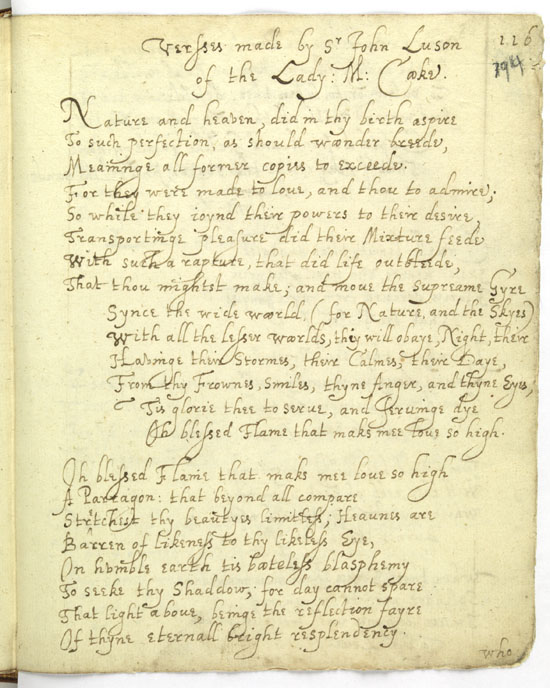 Versses made by Sr John Luson
of the Lady: M: Cooke.
116
194
Nature and heaven, did in thy birth aspire
To such perfection, as should woonder breede,
Meaininge all former copies to exceede.
For they were made to love, and thou to admire;
So while they ioynd their powers to their desire,
Transportinge pleasure did their Mixture feede
With such a rapture, that did life outbleede,
That thou mightst make; and move the supreame Gyre
Synce the wide woorld, (for Nature, and the Skyes)
With all the lesser woorlds, they will obaye, Night, their
Havinge their Stormes, their Calmes, their Daye,
From thy Frownes, Smiles, thyne Anger, and thyne Eyes,
Tis glorie thee to serve, and servinge dye
Oh blessed Flame that maks mee love so high.
Oh blessed Flame that maks mee love so high
A Parragon: that beyond all compare
Stretchest thy beautyes limitless; Heavnes are
Barren of likeness to thy likeless Eye,
On humble earth tis booteless blasphemy
To seeke thy Shaddow, for day cannot spare
That light above, beinge the reflection fayre
Of thyne eternall bright resplendency.
who